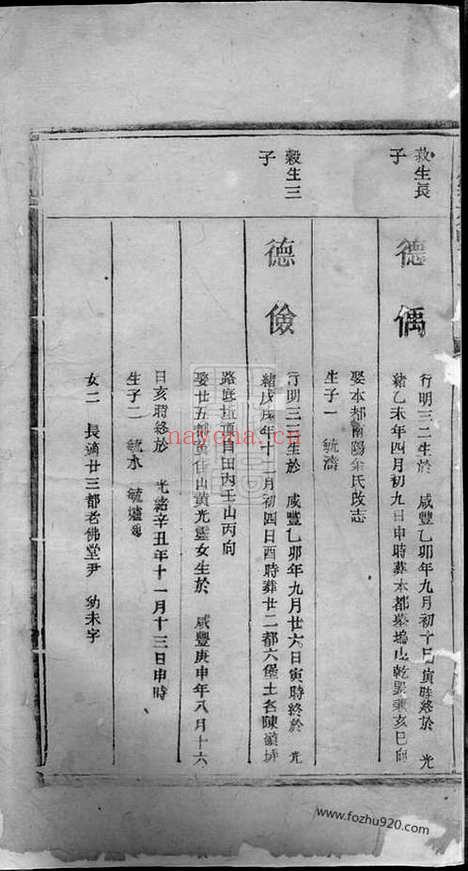 救生長
子
德 偊
行明三二生於 咸豐乙卯年九月初十日寅時終於 光
緒乙未年四月初九日申時葬本都墓塢山乾巽兼亥巳向
娶本都南陽余氏改志
生子一 毓濤
穀生三
子
德 儉
行明三 生於 咸豐乙卯年九月廿六日寅時終於 光
緒戊戌年十二月初四日酉時葬廿二都六堡土名陳
路底 頂自田內壬山丙向
娶廿五都黃住山黃光靈女生於 咸豐庚申年八月十六
日亥時終於 光緒辛丑年十一月十三日申時
生子二 毓水 毓墟
女二 長適廿三都老佛堂尹 幼未字
nayona.cn
www.fozhu920.com